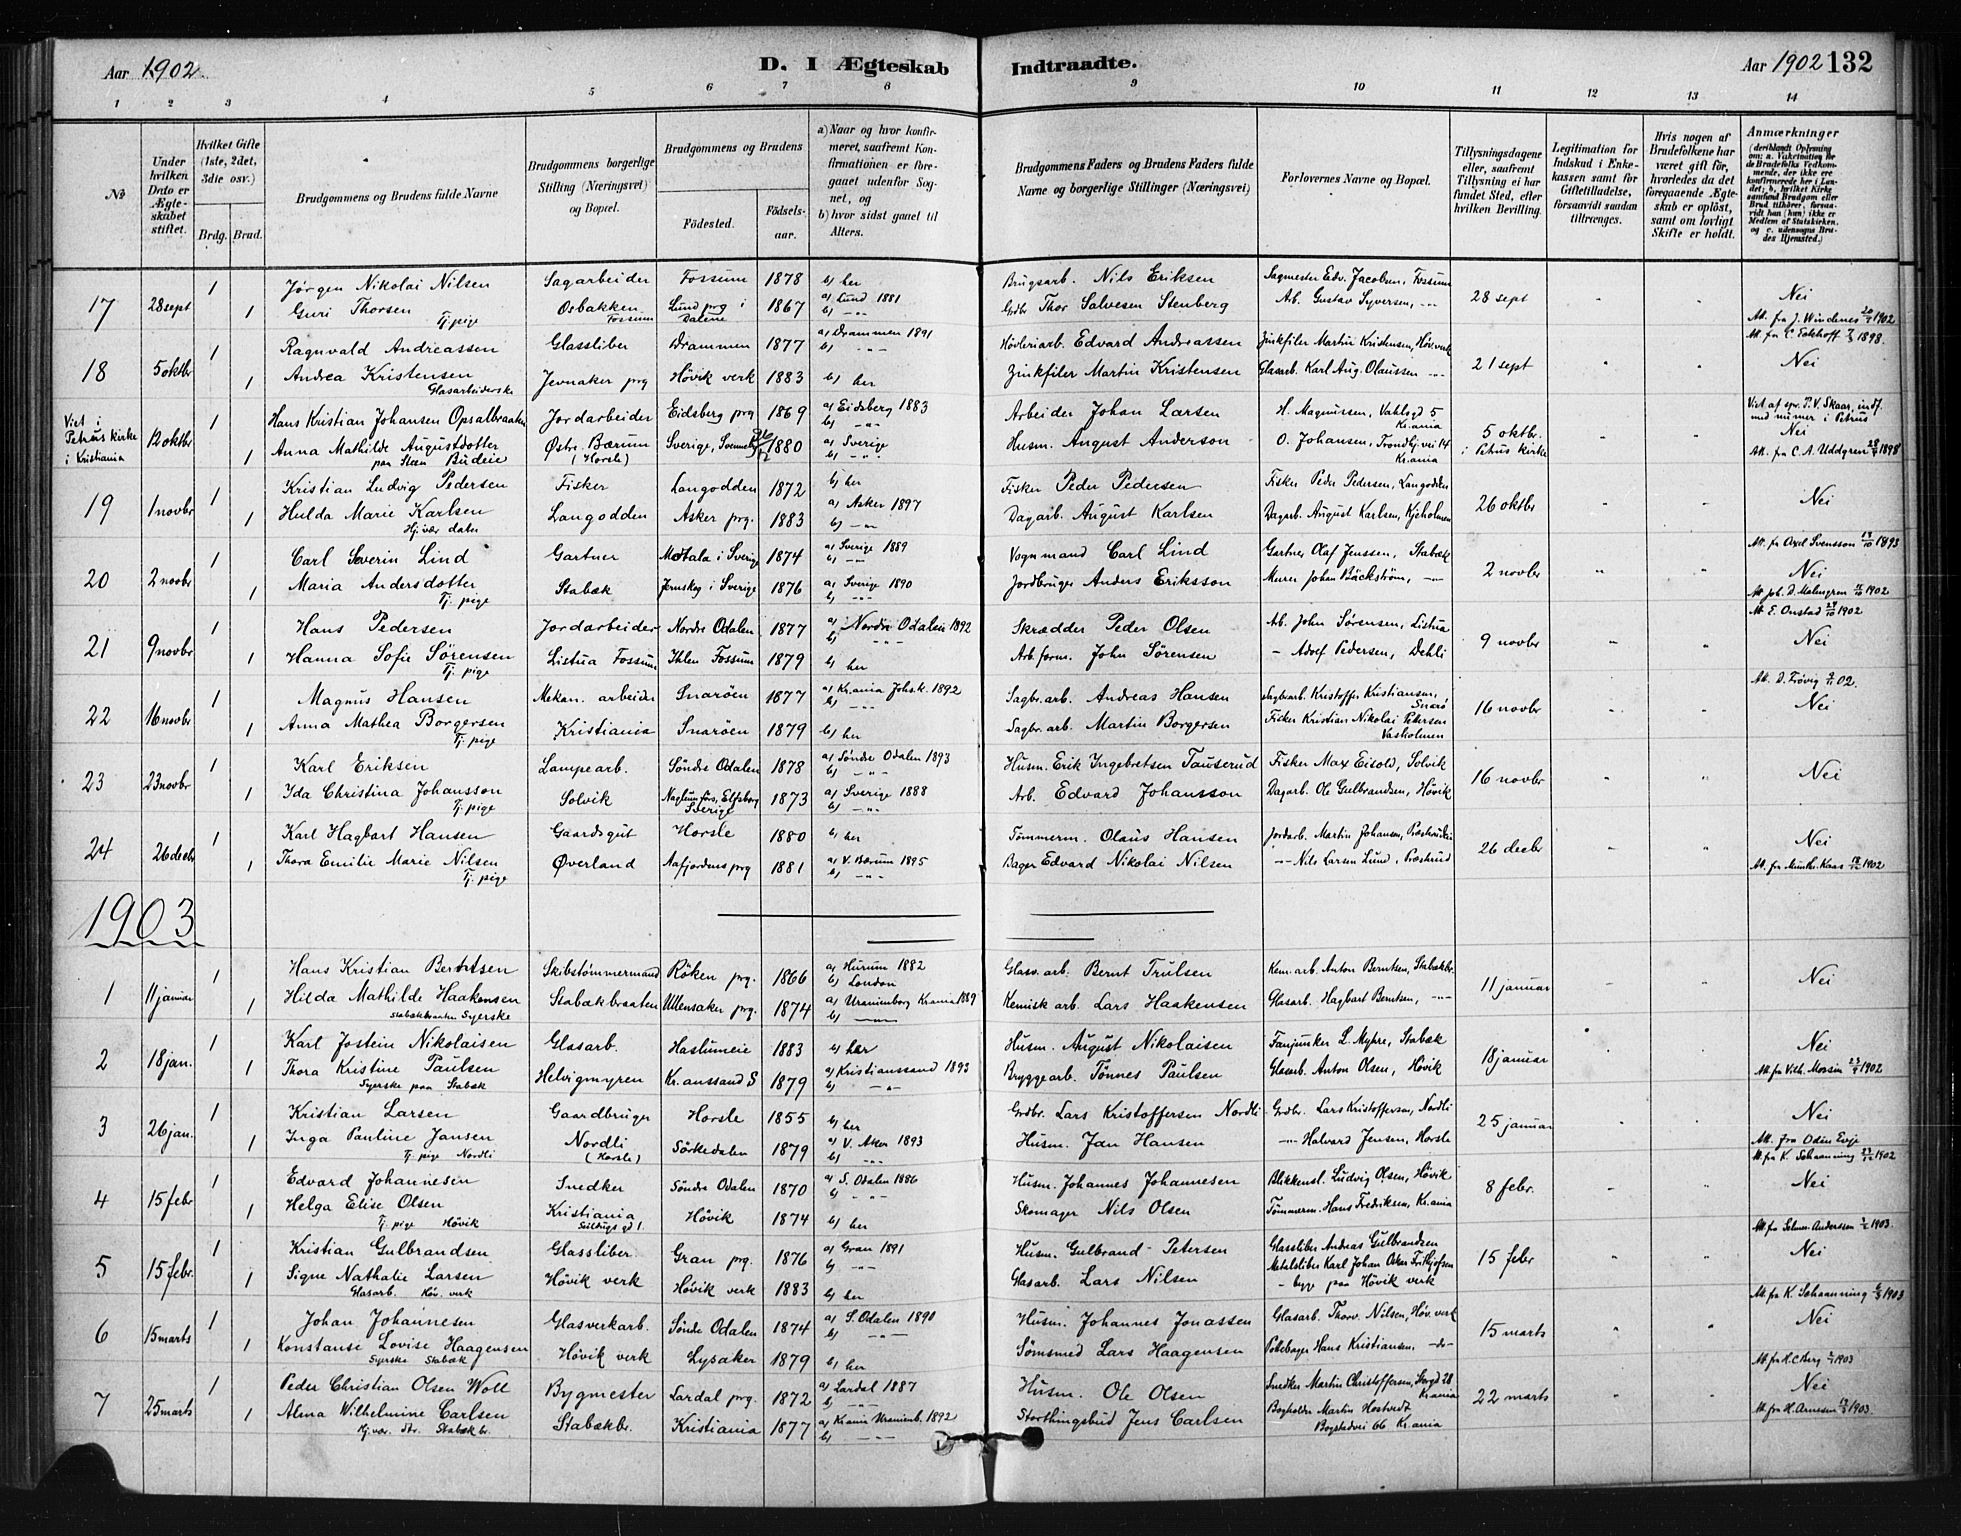 Aar 1902.
D. I Ægteskab Indtraadte.
Aar 1902 132
1 2 3 4 5 6 7 8 9 10 11 12 13 14
No
Under hvilken Dato er Ægteskabet stiftet.
Hvilket Gifte (1ste, 2det, 3die osv.)
Brdg. Brud.
Brudgommens og Brudens fulde Navne
Brudgommens borgerlige Stilling (Næringsvei) og Bopæl.
Brudgommens og Brudens
Födested. Födselsaar.
a) Naar og hvor konfirmeret, saafremt Konfirmationen er foregaaet udenfor Sognet, og
b) hvor sidst gaaet til Alters.
Brudgommens Faders og Brudens Faders fulde Navne og borgerlige Stillinger (Næringsvei)
Forlovernes Navne og Bopæl.
Tillysningsdagene eller, saafremt Tillysning ei har fundet Sted, efter hvilken Bevilling.
Legitimation for Indskud i Enkekassen samt for Giftetilladelse, forsaavidt saadan tiltrænges.
Hvis nogen af Brudefolkene har været gift för, hvorledes da det foregaaende Ægteskab er oplöst, samt om lovligt Skifte er holdt.
Anmærkninger
(deriblandt Oplysning om: a. Vakcination for de Brudefolks Vedkommende, der ikke ere konfirmerede her i Landet; b. hvilket Kirkesamfund Brudgom eller Brud tilhörer, forsaavidt han (hun) ikke er Medlem af Statskirken, og c. udensogns Brudes Hjemsted.)
17 28 sept 1 Jørgen Nikolai Nilsen Sagarbeider Fossum 1878 b) her Brugsarb. Nils Eriksen Sagmester Edv. Jacobsen, Fossum 28 sept Nei
1 Guri Thorsen Tj. pige Osbakken Fossum Lund prg i Dalene 1867 a) Lund 1881 b) -"- Grdbr Thor Salvesen Stenberg Arb. Gustav Syversen, -"- Att. fra J. Windenes 20/9 1902
18 5 oktbr 1 Ragnvald Andreassen Glassliber Drammen 1877 a) Drammen 1891 b) -"- Høvleriarb. Edvard Andreassen Zinkfiler Martin Kristensen, Høv. verk 21 sept Att. fra C. Eckhoff 7/3 1898. Nei
1 Andrea Kristensen Glasarbeiderske Jevnaker prg Høvik verk 1883 b) her Zinkfiler Martin Kristensen Glasarb. Karl Aug. Olaussen -"-
Viet i Petrus kirke i Kristiania 12 oktbr 1 Hans Kristian Johansen Opsalbraaten Jordarbeider Eidsberg prg 1869 a) Eidsberg 1883 b) -"- Arbeider Johan Larsen H. Magnussen, Vahlsgd 5 Kr.ania 5 oktbr. i Petrus kirke Viet af spr. P. V. Skaar, indf. med numer i Petrus Nei
1 Anna Mathilde Augustdotter paa Steen Budeie Østre Bærum (Horsle) Sverige, 1880 a) Sverige b) -"- Husm. August Anderson O. Johansen, Trondhj. vei 14 Kr.ania Att. fra C. A. Uddgren 28/7 1898
19 1 novbr 1 Kristian Ludvig Pedersen Fisker Langodden 1872 b) her Fisker Peder Pedersen Fisker Peder Pedersen, Langodden 26 oktbr Nei
1 Hulda Marie Karlsen Hj. vær datn Langodden Asker prg. 1883 a) Asker 1897 b) -"- Dagarb. August Karlsen Dagarb. August Karlsen, Kjeholmen
20 2 novbr 1 Carl Severin Lind Gartner Motala i Sverige 1874 a) Sverige 1889 b) -"- Vognmand Carl Lind Gartner Olaf Jenssen, Stabæk 2 novbr Att. fra Axel Svensson 14/10 1893 Nei
1 Maria Andersdotter Tj. pige Stabæk Jernskog i Sverige 1876 a) Sverige 1890 b) -"- Jordbruger Anders Eriksson Murer Johan Bäckström, -"- Att. Joh. D. Malmgren 11/10 1902
21 9 novbr 1 Hans Pedersen Jordarbeider Nordre Odalen 1877 a) Nordre Odalen 1892 b) -"- Skrædder Peder Olsen Arb. John Sørensen, Listua 9 novbr Att. E. Onstad 24/10 1902 Nei
1 Hanna Sofie Sørensen Tj. pige Listua Fossum Ihlen Fossum 1879 b) her Arb. form. John Sørensen - Adolf Pedersen, Dehli
22 16 novbr 1 Magnus Hansen Mekan. arbeider Snarøen 1877 a) Kr.ania Johs.k. 1892 b) -"- Sagbr. arb. Andreas Hansen Sagbr.arb. Kristoffer Kristiansen, Snarø 16 novbr Att. D. Frövig 9/11 02. Nei
1 Anna Mathea Borgersen Tj. pige Kristiania Snarøen 1879 b) her Sagbr. arb. Martin Borgersen Fisker Kristian Nikolai Petersen Vasholmen
23 23 novbr 1 Karl Eriksen Lampearb. Søndre Odalen 1878 a) Søndre Odalen 1893 b) -"- Husm. Erik Ingebretsen Tauserud Fisker Max Eisold, Solvik 16 novbr Nei
1 Ida Christina Johansson Tj. pige Solvik Naglum förs, Elfsborg Sverige 1873 a) Sverige 1888 b) -"- Arb. Edvard Johansson Dagarb. Ole Gulbrandsen, Høvik
24 26 decbr 1 Karl Hagbart Hansen Gaardsgut Horsle 1880 b) her Tømmerm. Olaus Hansen Jordarb. Martin Johansen, 26 decbr Nei
1 Thora Emilie Marie Nilsen Tj. pige Øverland Aafjordens prg 1881 a) V. Bærum 1895 b) -"- Bager Edvard Nikolai Nilsen -"- Nils Larsen Lund, Præsterud Att. fra Munthe-Kaas 18/12 1902
1903
1 11 januar 1 Hans Kristian Berntsen Skibstømmermand Røken prg. 1866 a) Hurum 1882 b) London Glasv. arb. Bernt Trulsen Kem. arb. Anton Berntsen, Stabækbr. 11 januar Nei
1 Hilda Mathilde Haakensen Stabækbraaten Syerske Stabækbraaten Ullensaker prg. 1874 a) Uranienborg Kr.ania 1889 b) -"- Kemisk arb. Lars Haakensen Glasarb. Hagbart Berntsen, -"-
2 18 jan. 1 Karl Jostein Nikolaisen Glasarb. Haslumeie 1883 b) her Husm. August Nikolaisen Fanjunker L. Myhre, Stabæk 18 januar Nei
1 Thora Kristine Paulsen Syerske paa Stabæk Helvigmyren Kr.anssand S 1879 a) Kristianssand 1893 b) -"- Bryggearb. Tønnes Paulsen Glasarb. Anton Olsen, Høvik Att. fra Vilh. Morsin 23/9 1902
3 26 jan. 1 Kristian Larsen Gaardbruger Horsle 1855 b) her Grdbr. Lars Kristoffersen Nordli Grdbr. Lars Kristoffersen, Nordli 25 januar Nei
1 Inga Pauline Jansen Tj. pige Nordli Nordli (Horsle) Sørkedalen 1879 a) V. Aker 1893 b) -"- Husm. Jan Hansen -"- Halvard Jensen, Horsle Att. fra Odin Evje
4 15 febr 1 Edvard Johannesen Snedker Søndre Odalen 1870 a) S. Odalen 1886 b) -"- Husm. Johannes Johannesen Blikkensl. Ludvig Olsen, Høvik 8 febr. Att. fra K. Schanning 23/12 1902 Nei
1 Helga Elise Olsen Tj. pige Høvik Kristiania Høvik 1874 b) her Skomager Nils Olsen Tømmerm. Hans Fredriksen, Kr.ania
5 15 febr. 1 Kristian Gulbrandsen Glassliber. Gran prg. 1876 a) Gran 1891 b) -"- Husm. Gulbrand Petersen Glassliber Andreas Gulbrandsen 15 febr Nei
1 Signe Nathalie Larsen Glasarb. Høv. verk Høvik verk Høvik verk 1883 b) her Glasarb. Lars Nilsen Metalsliber Karl Johan Oskar Frithjofsen - begge paa Høvik verk
6 15 marts 1 Johan Johannesen Glasverkarb. Søndre Odalen 1874 a) S. Odalen 1890 b) -"- Husm. Johannes Jonassen Glasarb. Thorv. Nilsen, Høv. verk 15 marts Att. fra K. Schanning 1903 Nei
1 Konstanse Lovise Haagensen Syerske Stabæk Høvik verk Lysaker 1879 b) her Sømsmed Lars Haagensen Hans Kristiansen, -do-
7 25 marts 1 Peder Christian Olsen Woll Bygmester Lardal prg. 1872 a) Lardal 1887 b) -"- Husm. Ole Olsen Snedker Martin Christoffersen, Storgd 28 Kr.ania 22 marts Att. fra H. C. Berg 1903 Nei
1 Alma Wilhelmine Carlsen Stabækbr. Stabækbr. Kristiania 1877 a) Kr.ania Uranienb. 1892 b) -"- Storthingsbud Jens Carlsen Bogholder Martin Hostvedt Bogstadvei 66 Kr.ania Att. fra H. Arnesen 1903.